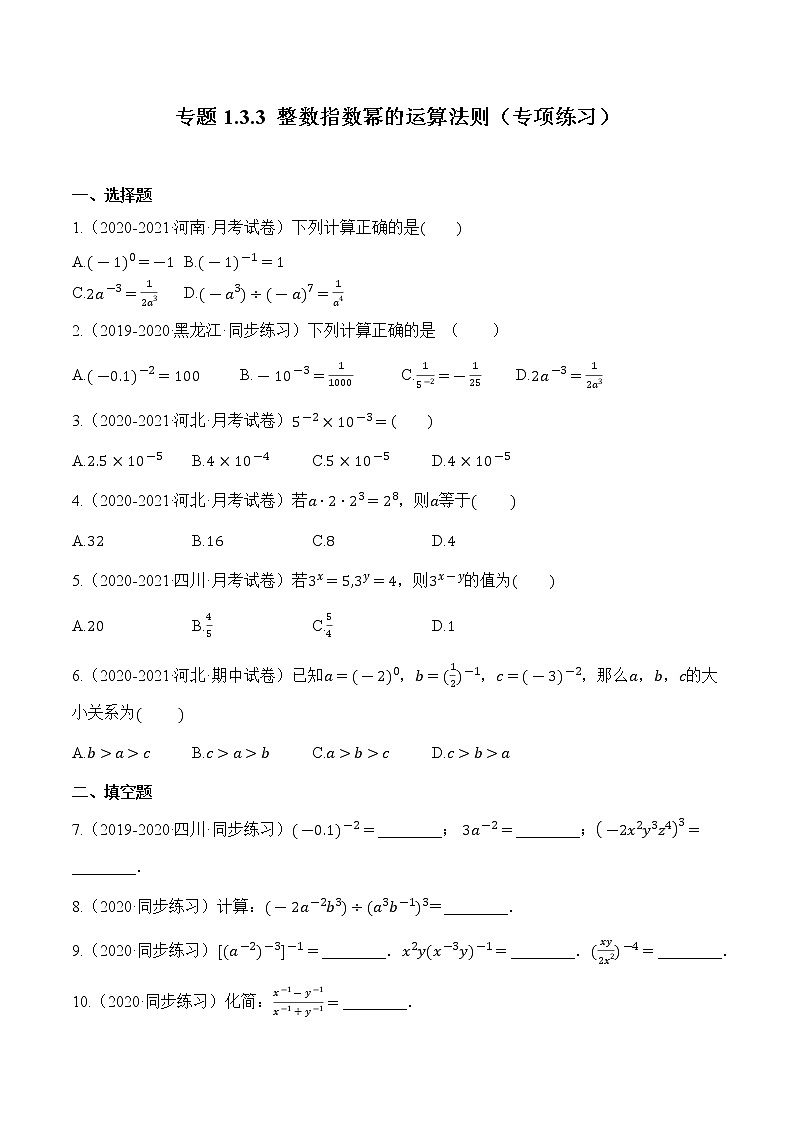 专题 1.3.3 整数指数幂的运算法则（专项练习）
一、选择题
1.（2020-2021·河南·月考试卷）下列计算正确的是(  )
A.(−1)⁰=−1 B.(−1)⁻¹=1
C.2a⁻³=1/(2a³) D.(−a³)÷(−a)⁷=1/a⁴
2.（2019-2020·黑龙江·同步练习）下列计算正确的是 （  ）
A.(−0.1)⁻²=100 B.−10⁻³=1/1000 C.1/5⁻²=−1/25 D.2a⁻³=1/(2a³)
3.（2020-2021·河北·月考试卷）5⁻²×10⁻³=(  )
A.2.5×10⁻⁵ B.4×10⁻⁴ C.5×10⁻⁵ D.4×10⁻⁵
4.（2020-2021·河北·月考试卷）若a·2·2³=2⁸，则a等于(  )
A.32 B.16 C.8 D.4
5.（2020-2021·四川·月考试卷）若3ˣ=5,3ʸ=4，则3ˣ⁻ʸ的值为(  )
A.20 B.4/5 C.5/4 D.1
6.（2020-2021·河北·期中试卷）已知a=(−2)⁰，b=(1/2)⁻¹，c=(−3)⁻²，那么a，b，c的大
小关系为(  )
A.b>a>c B.c>a>b C.a>b>c D.c>b>a
二、填空题
7.（2019-2020·四川·同步练习）(−0.1)⁻²=________； 3a⁻²=________；(−2x²y³z⁴)³=
________．
8.（2020·同步练习）计算：(−2a⁻²b³)÷(a³b⁻¹)³=________．
9.（2020·同步练习）[(a⁻²)⁻³]⁻¹=________．x²y(x⁻³y)⁻¹=________．(xy/2x²)⁻⁴=________．
10.（2020·同步练习）化简：(x⁻¹−y⁻¹)/(x⁻¹+y⁻¹)=________．